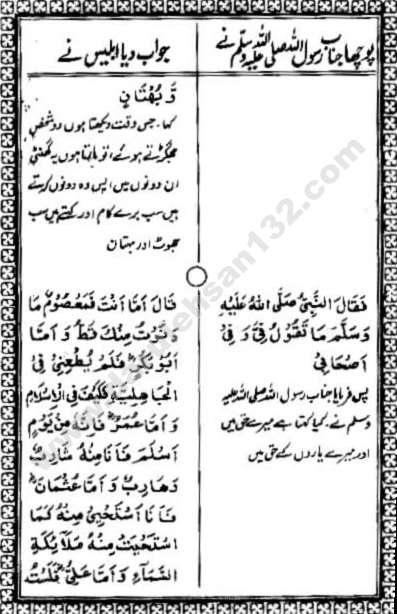 پوچھا جناب رسول اللہ صلی اللہ علیہ وسلم نے
جواب دیا ابلیس نے
وَّ بُهْتَانٍ
کہا۔ جس وقت دیکھتا ہوں دو شخص
جھگڑتے ہوئے، تو ہلاتا ہوں یہ گھنٹی
ان دونوں میں اپس وہ دونوں کرتے
ہیں سب برے کام اور کہتے ہیں سب
جھوٹ اور بہتان
فَقَالَ النَّبِيُّ صَلَّى اللهُ عَلَيْهِ
وَسَلَّمَ مَا تَقُوْلُ فِيَّ وَ فِيْ
اَصْحَابِيْ
پس فرمایا جناب رسول اللہ صلی اللہ علیہ
وسلم نے۔ کیا کہتا ہے میرے حق میں
اور میرے یاروں کے حق میں
قَالَ اَمَّا اَنْتَ فَمَعْصُوْمٌ مَا
قَرُبْتُ مِنْكَ قَطُّ وَ اَمَّا
اَبُوْبَكْرٍ فَلَمْ يُطِعْنِيْ فِي
الْجَاهِلِيَّةِ فَكَيْفَ فِي الْاِسْلَامِ
وَ اَمَّا عُمَرُ فَاِنَّهُ مِنْ يَوْمٍ
اَسْلَمَ فَاَنَا مِنْهُ شَارِدٌ
وَهَارِبٌ وَ اَمَّا عُثْمَانُ
فَاَنَا اَسْتَحْيِيْ مِنْهُ كَمَا
اسْتَحْيَتْ مِنْهُ مَلَائِكَةُ
السَّمَاءِ وَ اَمَّا عَلِيٌّ فَلَسْتُ